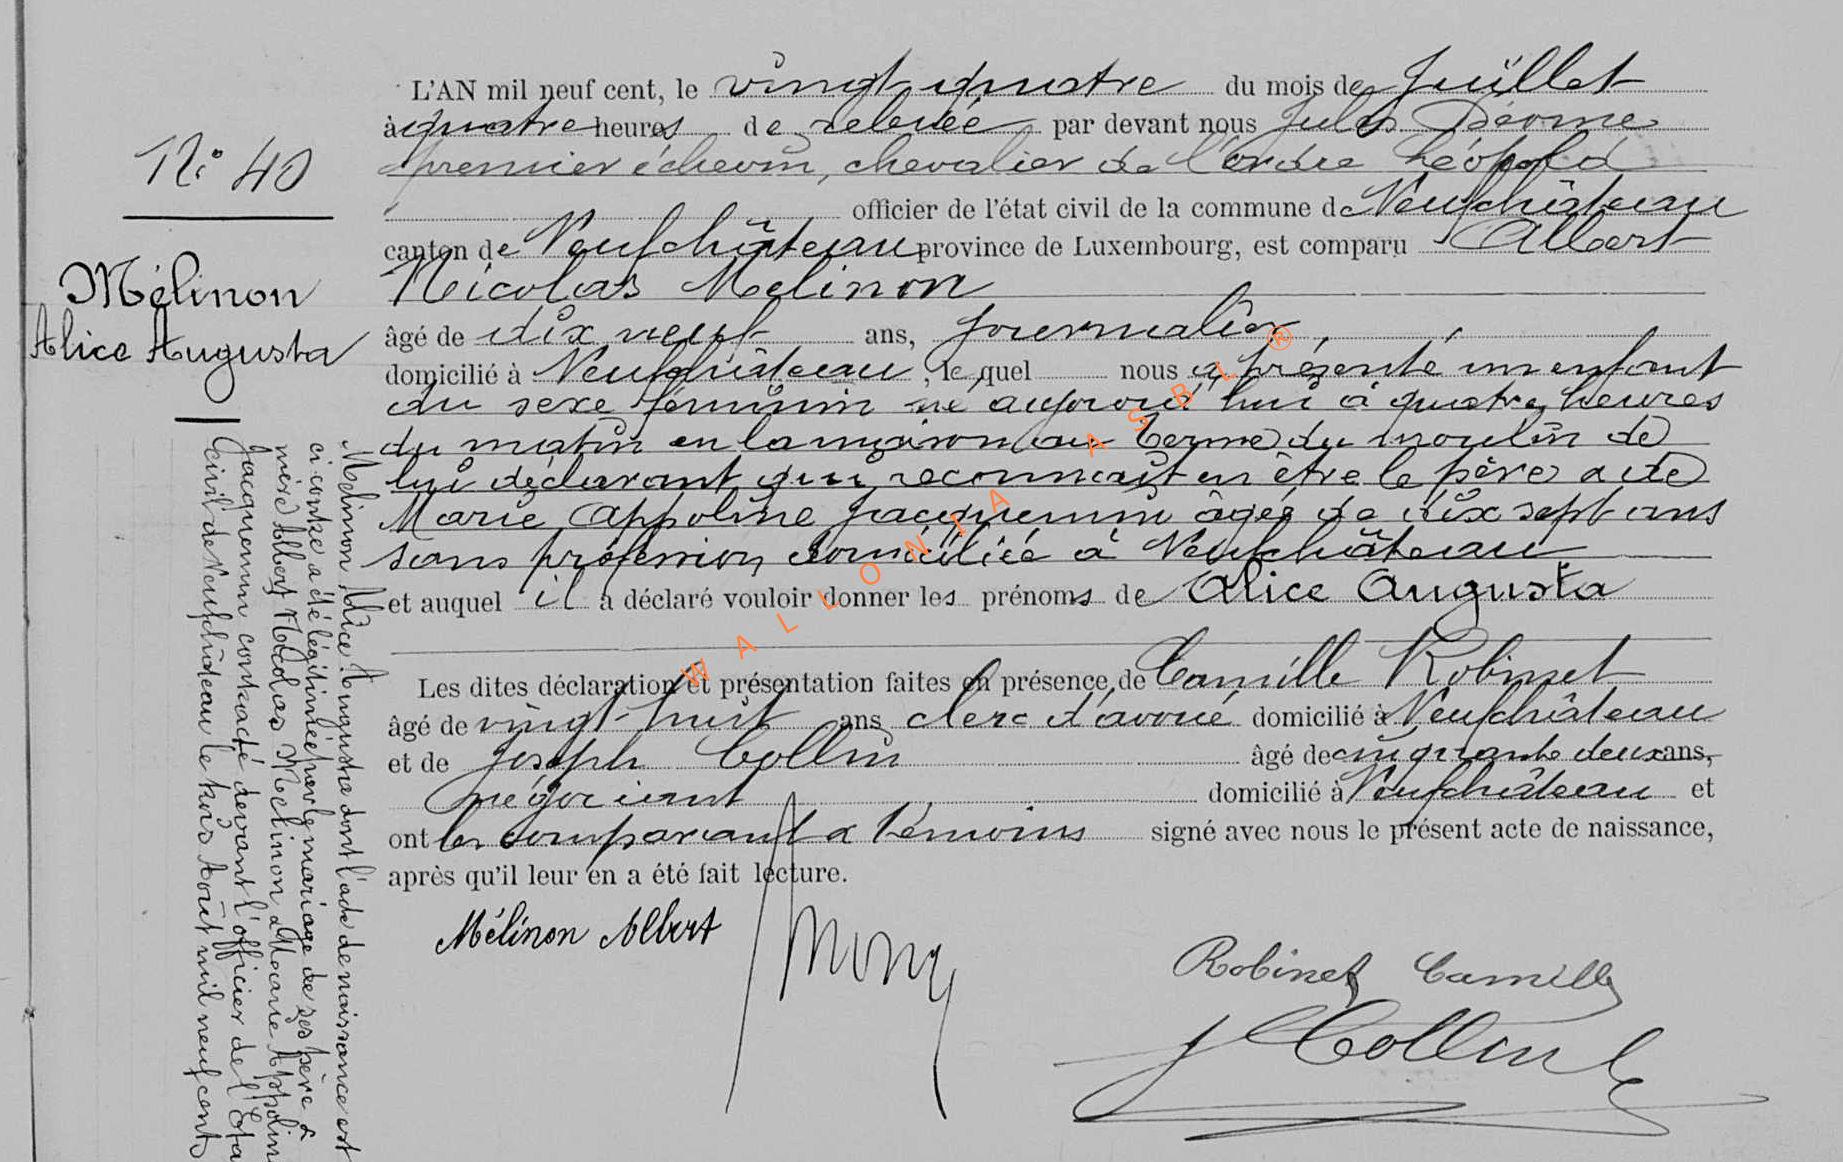 N° 40
Mélinon
Alice Augusta
L'AN mil neuf cent, le vingt quatre du mois de Juillet
à quatre heures de relevée par devant nous Jules
premier échevin, chevalier de l'ordre Léopold
officier de l'état civil de la commune de Neufchâteau
canton de Neufchâteau province de Luxembourg, est comparu Albert
Nicolas Mélinon
âgé de dix neuf ans, journalier,
domicilié à Neufchâteau, le quel nous a présenté un enfant
du sexe féminin né aujourd'hui à quatre heures
du matin en la maison au Terme du moulin de
lui déclarant qui reconnait en être le père et de
Marie Appoline Jacquemin âgée de dix sept ans
sans profession domiciliée à Neufchâteau
et auquel il a déclaré vouloir donner les prénoms de Alice Augusta
Les dites déclaration et présentation faites en présence de Camille Robinet
âgé de vingt-huit ans clerc d'avoué domicilié à Neufchâteau
et de Joseph Collin âgé de cinquante deux ans,
négociant domicilié à Neufchâteau et
ont les comparant & témoins signé avec nous le présent acte de naissance,
après qu'il leur en a été fait lecture.
Mélinon Albert
Robinet Camille
J Collin
Melinon Alice Augusta dont l'acte de naissance est
ci contre a été légitimée par le mariage de ses père &
mère Albert Nicolas Melinon & Marie Appolin
Jacquemin contracté devant l'officier de l'Eta
Civil de Neufchâteau le trois Août mil neuf cent
WALLONIA ASBL ®